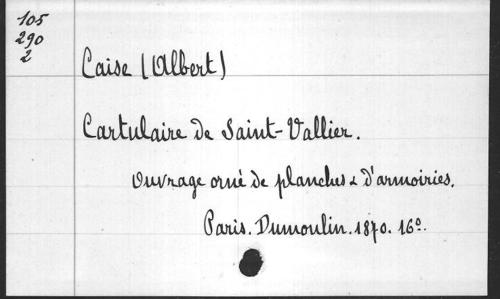 105
290
2
Caise (Albert)
Cartulaire de Saint-Vallier.
Ouvrage orné de planches & d'armoiries.
Paris. Dumoulin. 1870. 16º.